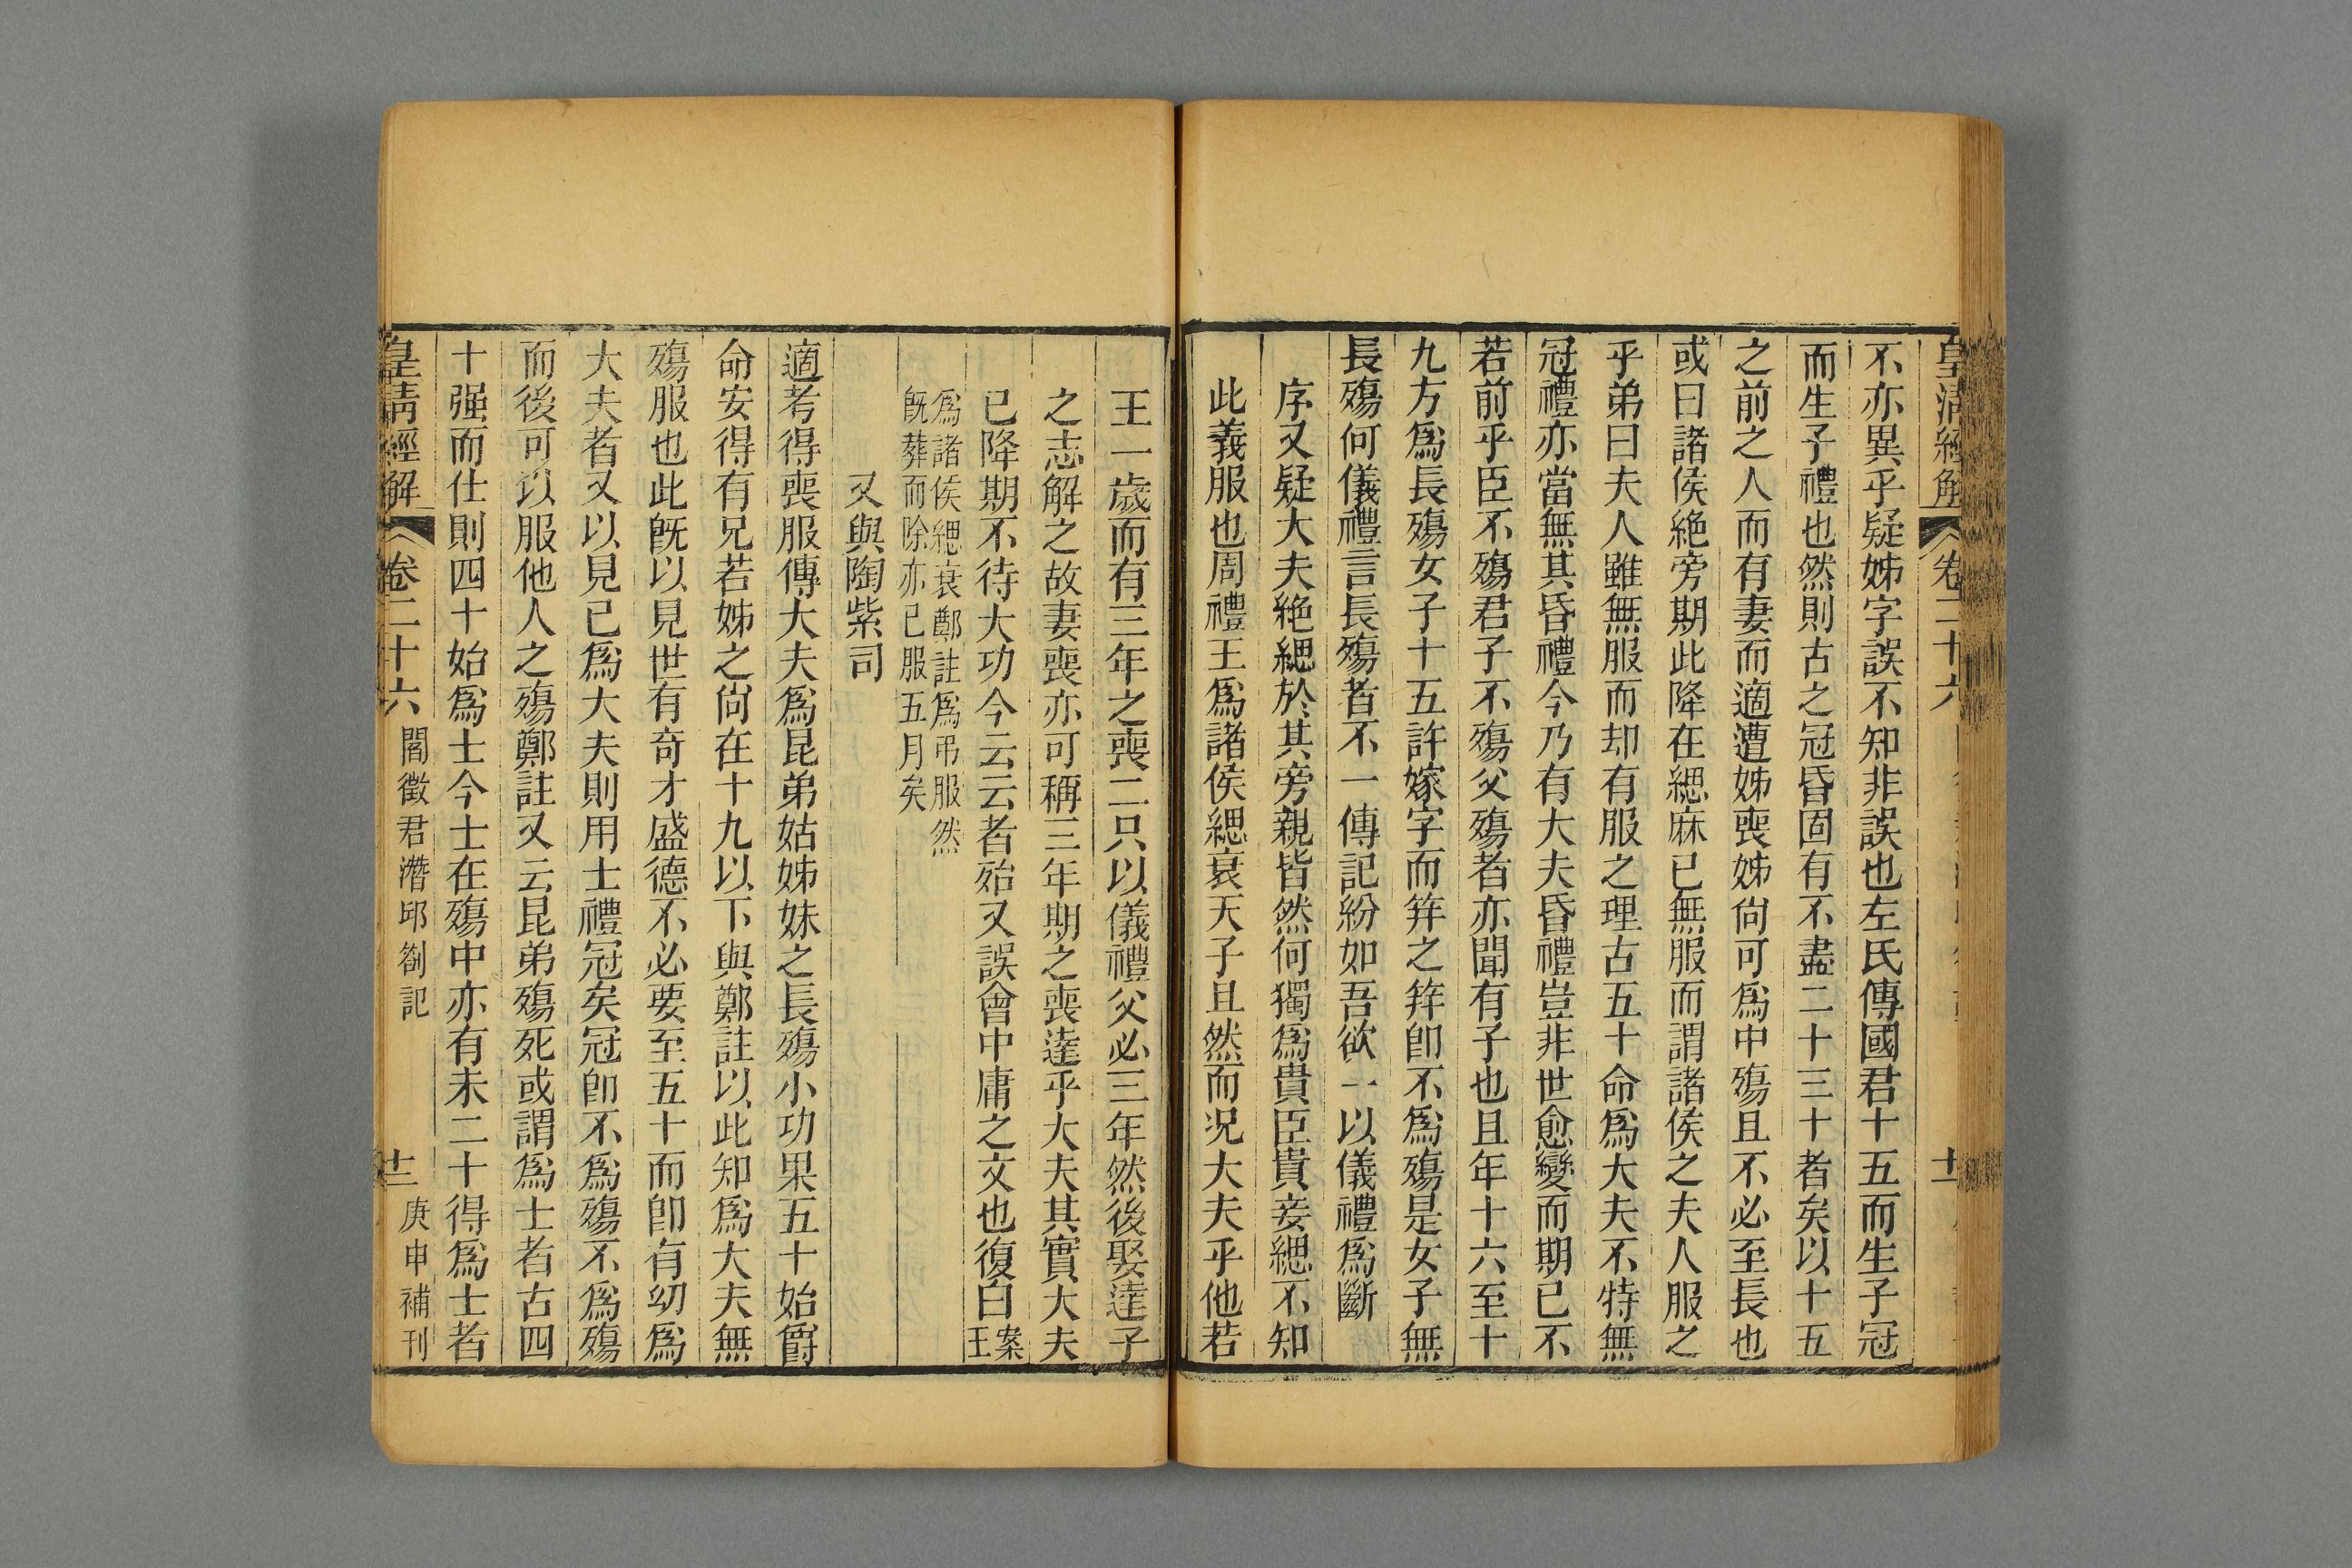 皇清經解 卷二十六 十一
不亦異乎疑姊字誤不知非誤也左氏傳國君十五而生子冠
而生子禮也然則古之冠昏固有不盡二十三十者矣以十五
之前之人而有妻而適遭姊喪姊尙可爲中殤且不必至長也
或曰諸侯絶旁期此降在緦麻已無服而謂諸侯之夫人服之
乎弟曰夫人雖無服而却有服之理古五十命爲大夫不特無
冠禮亦當無其昏禮今乃有大夫昏禮豈非世愈變而期已不
若前乎臣不殤君子不殤父殤者亦聞有子也且年十六至十
九方爲長殤女子十五許嫁字而笄之笄卽不爲殤是女子無
長殤何儀禮言長殤者不一傳記紛如吾欲一以儀禮爲斷
序又疑大夫絶緦於其旁親皆然何獨爲貴臣貴妾緦不知
此義服也周禮王爲諸侯緦衰天子且然而况大夫乎他若
王一歲而有三年之喪二只以儀禮父必三年然後娶達子
之志解之故妻喪亦可稱三年期之喪達乎大夫其實大夫
已降期不待大功今云云者殆又誤會中庸之文也復白案王
爲諸侯緦衰鄭註爲弔服然
旣葬而除亦已服五月矣
又與陶紫司
適考得喪服傳大夫爲昆弟姑姊妹之長殤小功果五十始爵
命安得有兄若姊之尙在十九以下與鄭註以此知爲大夫無
殤服也此旣以見世有奇才盛德不必要至五十而卽有幼爲
大夫者又以見已爲大夫則用士禮冠矣冠卽不爲殤不爲殤
而後可以服他人之殤鄭註又云昆弟殤死或謂爲士者古四
十强而仕則四十始爲士今士在殤中亦有未二十得爲士者
皇清經解 卷二十六 閻徵君潛邱劄記 十二 庚申補刊